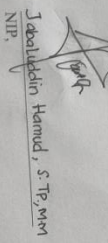 Jabaluddin Hamud, S.TP., M.M
NIP.